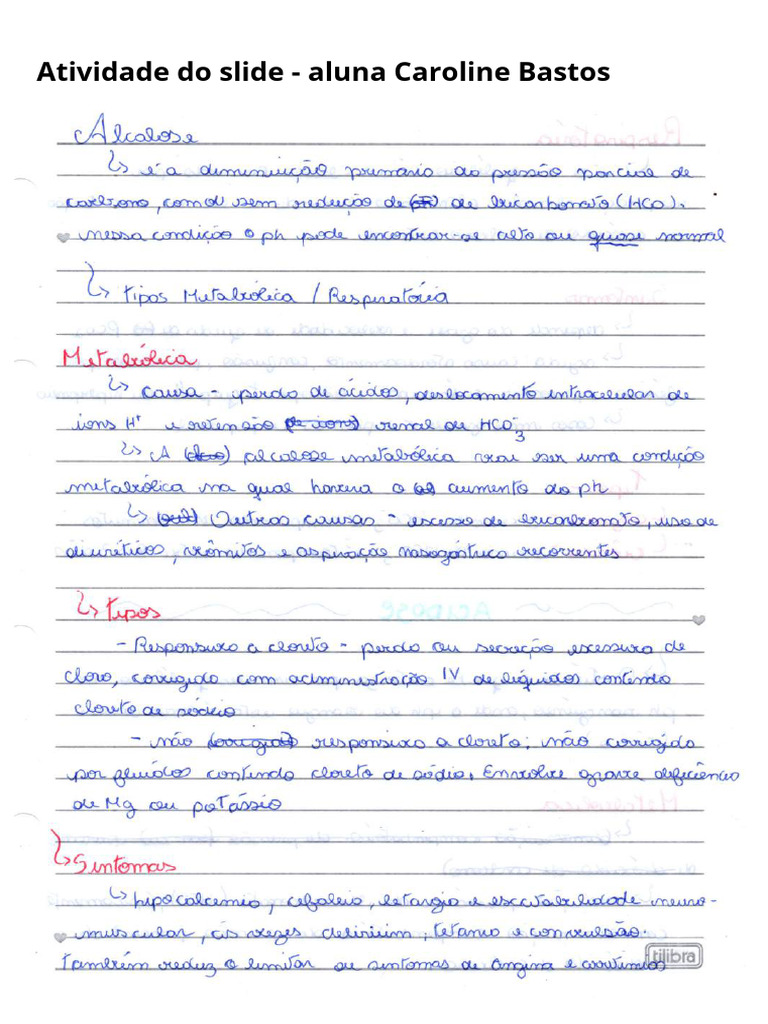 Atividade do slide - aluna Caroline Bastos
Alcalose
↳ é a diminuição primária da pressão parcial de
carbono, com ou sem redução de de bicarbonato (HCO).
nessa condição o ph pode encontrar-se alto ou quase normal
↳ tipos Metabólica / Respiratória
Metabólica
↳ causa - perda de ácidos, deslocamento intracelular de
íons H+ e retensão (de íons) renal de HCO-3
↳ A alcalose metabólica vai ser uma condição
metabólica na qual haverá o aumento do ph
↳ Outras causas - excesso de bicarbonato, uso de
diuréticos, vômitos e aspiração nasogástrica recorrentes
↳ tipos
- Responsivo a cloreto - perda ou secreção excessiva de
cloro, corrigido com administração IV de líquidos contendo
cloreto de sódio
- não (corrigido) responsivo a cloreto: não corrigido
por fluídos contendo cloreto de sódio. Envolve grave deficiência
de Mg ou potássio
↳ Sintomas
↳ hipocalcemia, cefaleia, letargia e excitabilidade neuro-
muscular, às vezes delirium, tetania e convulsão.
também reduz o limiar ou sintomas de angina e arritmias
tilibra